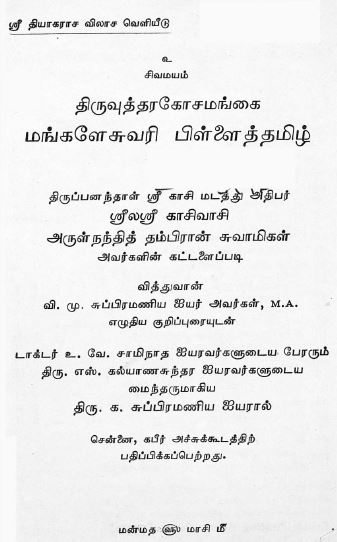 ஸ்ரீ தியாகராச விலாச வெளியீடு
உ
சிவமயம்
திருவுத்தரகோசமங்கை
மங்களேசுவரி பிள்ளைத்தமிழ்
திருப்பனந்தாள் ஸ்ரீ காசி மடத்து அதிபர்
ஸ்ரீலஸ்ரீ காசிவாசி
அருள்நந்தித் தம்பிரான் சுவாமிகள்
அவர்களின் கட்டளைப்படி
வித்துவான்
வி. மு. சுப்பிரமணிய ஐயர் அவர்கள், M.A.
எழுதிய குறிப்புரையுடன்
டாக்டர் உ. வே. சாமிநாத ஐயரவர்களுடைய பேரரும்
திரு. எஸ். கல்யாணசுந்தர ஐயரவர்களுடைய
மைந்தருமாகிய
திரு. க. சுப்பிரமணிய ஐயரால்
சென்னை, கபீர் அச்சுக்கூடத்திற்
பதிப்பிக்கப்பெற்றது.
மன்மத ௵ மாசி ௴